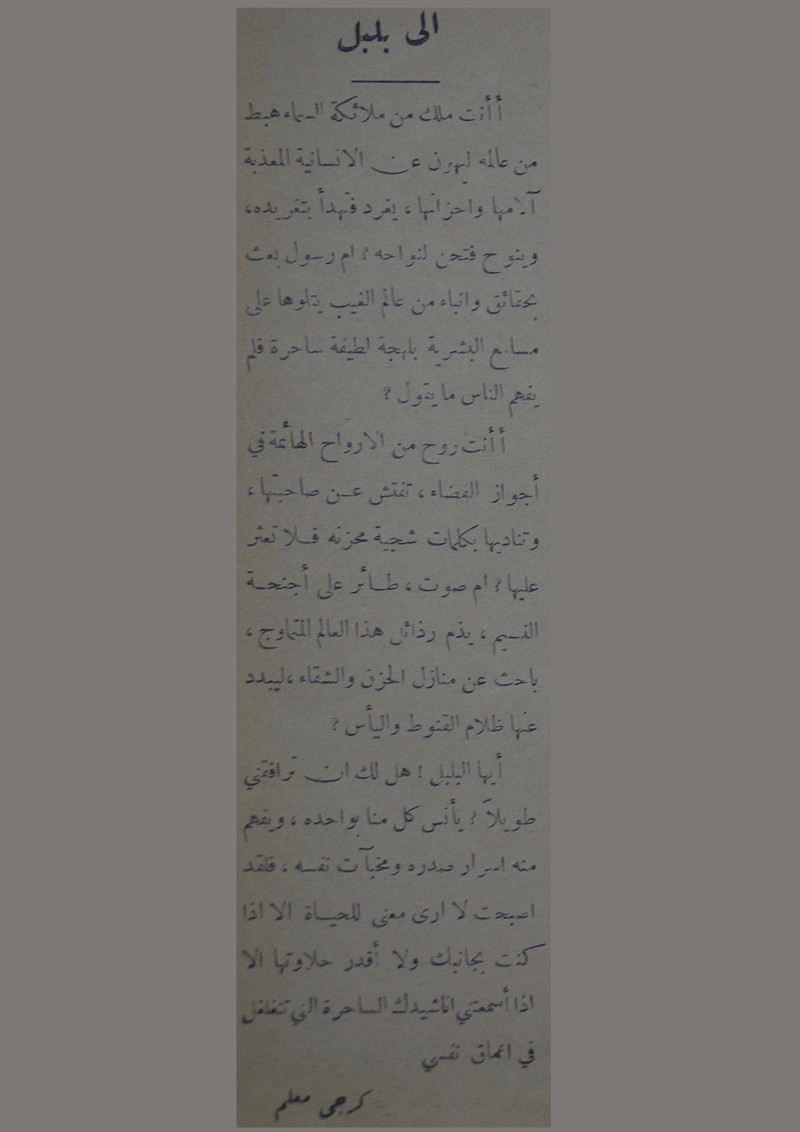 الى بلبل
أأنت ملك من ملائكة السماء هبط
من عالمه ليهون عن الانسانية المعذبة
آلامها واحزانها ، يغرد فتهدأ بتغريده،
وينوح فتحن لنواحه ? ام رسول بعث
بحقائق وانباء من عالم الغيب يتلوها على
مسامع البشرية بلهجة لطيفة ساحرة فلم
يفهم الناس ما يقول ?
أأنت روح من الارواح الهائمة في
أجواز الفضاء ، تفتش عن صاحبتها ،
وتناديها بكلمات شجية محزنه فلا تعثر
عليها ? ام صوت ، طائر على أجنحة
النسيم ، يذم رذائل هذا العالم المتماوج ،
باحث عن منازل الحزن والشقاء ،ليبدد
عنها ظلام القنوط واليأس ?
أيها البلبل ! هل لك ان ترافقني
طويلاً ? يأنس كل منا بواحده ، ويفهم
منه اسرار صدره ومخبآت نفسه ، فلقد
اصبحت لا ارى معنى للحياة الا اذا
كنت بجانبك ولا أقدر حلاوتها الا
اذا أسمعتني اناشيدك الساحرة التي تتغلغل
في اعماق نفسي
كرجي معلم